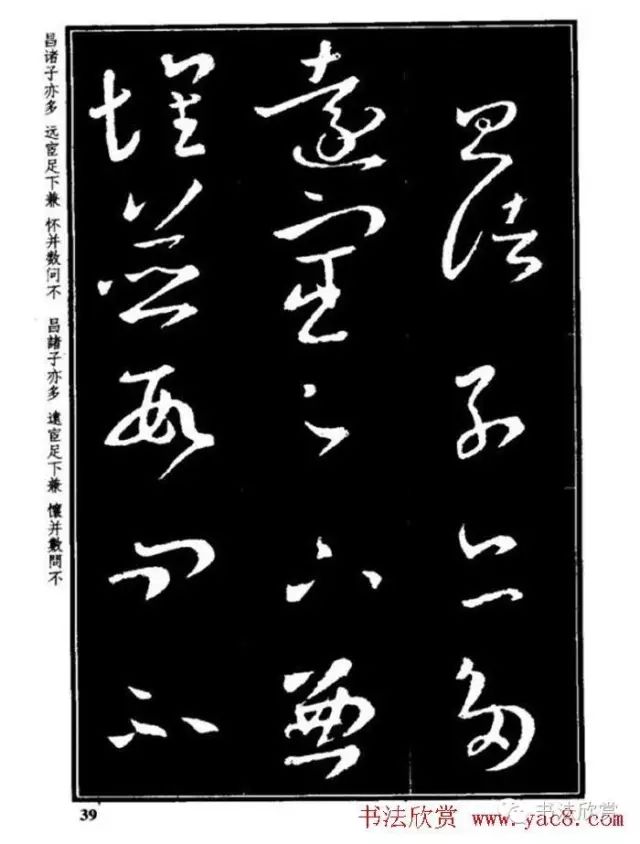 昌諸子亦多
遠宦足下兼
懷并數問不
昌诸子亦多 远宦足下兼 怀并数问不 昌諸子亦多 遠宦足下兼 懷并數問不
39
书法欣赏 www.yac8.com
书法欣赏